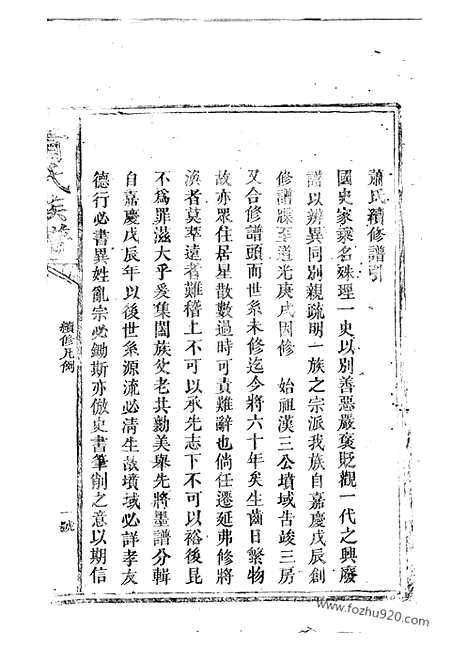 蕭氏續修譜引
國史家乘名殊理一史以別善惡嚴褒貶觀一代之興廢
譜以辨異同別親疏明一族之宗派我族自嘉慶戊辰創
修譜牒至道光庚戌因修 始祖漢三公墳域告竣三房
又合修譜頭而世系未修迄今將六十年矣生齒日繁物
故亦眾住居星散數過時可責難辭也倘任遷延弗修將
渙者莫萃遠者難稽上不可以承先志下不可以裕後昆
不為罪滋大乎爰集闔族父老共勷美舉先將墨譜分輯
自嘉慶戊辰年以後世系源流必清生故墳域必詳孝友
德行必書異姓亂宗必鋤斯亦倣史書筆削之意以期信
蕭氏族譜
續修凡例
一號
www.fozhu920.com